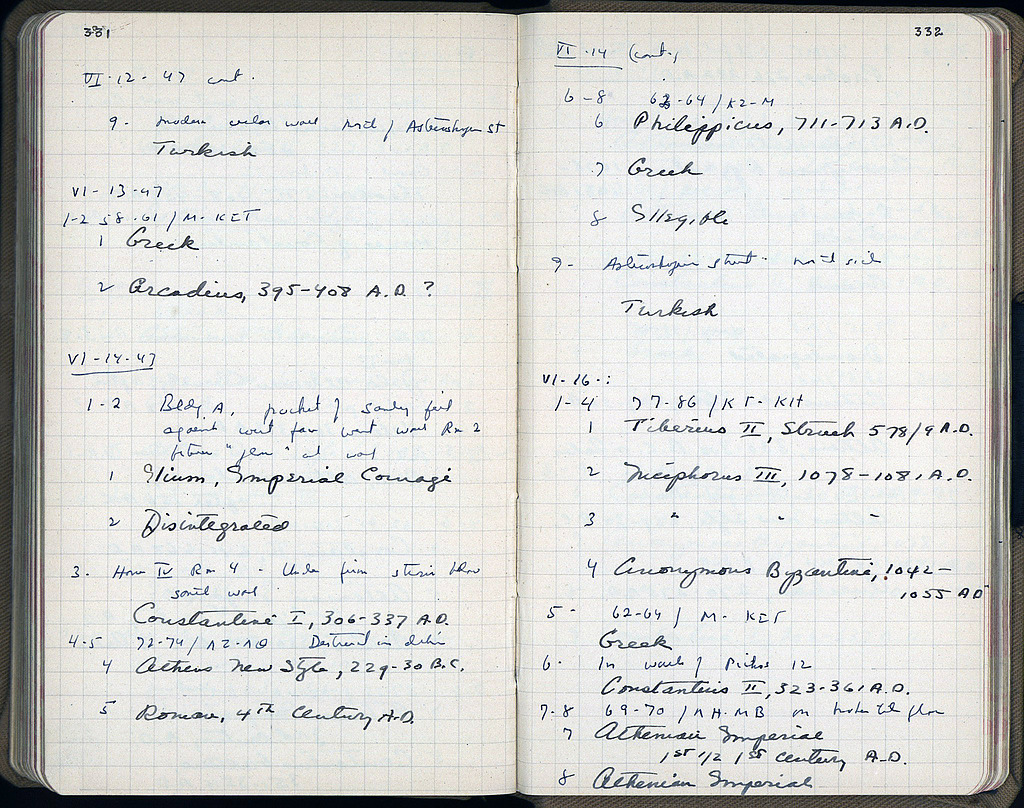 331
VI-12-47 cont.
9. modern cellar wall north / Asteroskopeiou St
Turkish
VI-13-47
1-2 58-61 / M-KET
1 Greek
2 Arcadius, 395-408 A.D. ?
VI-14-47
1-2 Bldg A, pocket of sandy fill
against west face west wall Rm 2
" " at
1 Ilium, Imperial Coinage
2 Disintegrated
3. House IV Rm 4 - Under from
south wall
Constantine I, 306-337 A.D.
4-5 72-74 / Destroyed in
4 Athens New Style, 229-30 B.C.
5 Roman, 4th Century A.D.
332
VI-14 (cont.)
6-8 62-64 / KZ-M
6 Philippicus, 711-713 A.D.
7 Greek
8 Illegible
9- Asteroskopeiou street - north side
Turkish
VI-16-:
1-4 77-86 / KT-KH
1 Tiberius II, Struck 578/9 A.D.
2 Nicephorus III, 1078-1081 A.D.
3 " " "
4 Anonymous Byzantine, 1042-
1055 AD
5- 62-64 / M-KET
Greek
6. In wall of Pithos 12
Constantius II, 323-361 A.D.
7-8 69-70 / on floor
7 Athenian Imperial
1st 1/2 1st century A.D.
8 Athenian Imperial